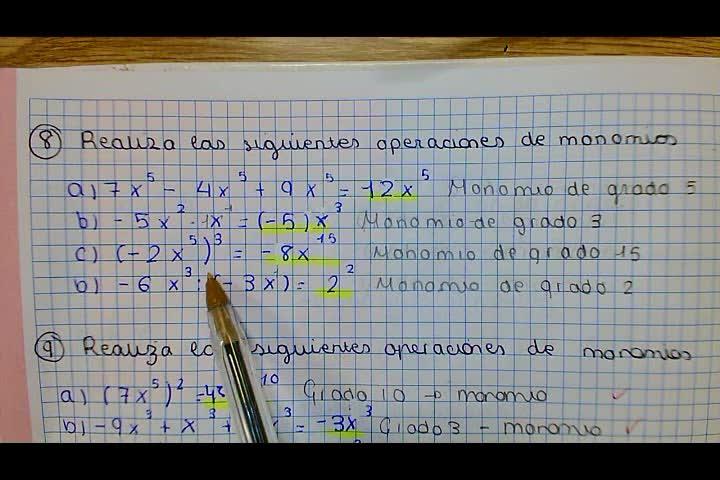 8 Realiza las siguientes operaciones de monomios
a) 7x⁵ - 4x⁵ + 9x⁵ = 12x⁵ Monomio de grado 5
b) -5x² · 1x¹ = (-5)x³ Monomio de grado 3
c) (-2x⁵)³ = -8x¹⁵ Monomio de grado 15
b) -6x³ : (-3x¹) = 2² Monomio de grado 2
9 Realiza siguientes operaciones de monomios
a) (7x⁵)² = ¹⁰ Grado 10 → monomio ✓
b) -9x³ + x³ + ³ = -3x³ Grado 3 - monomio ✓